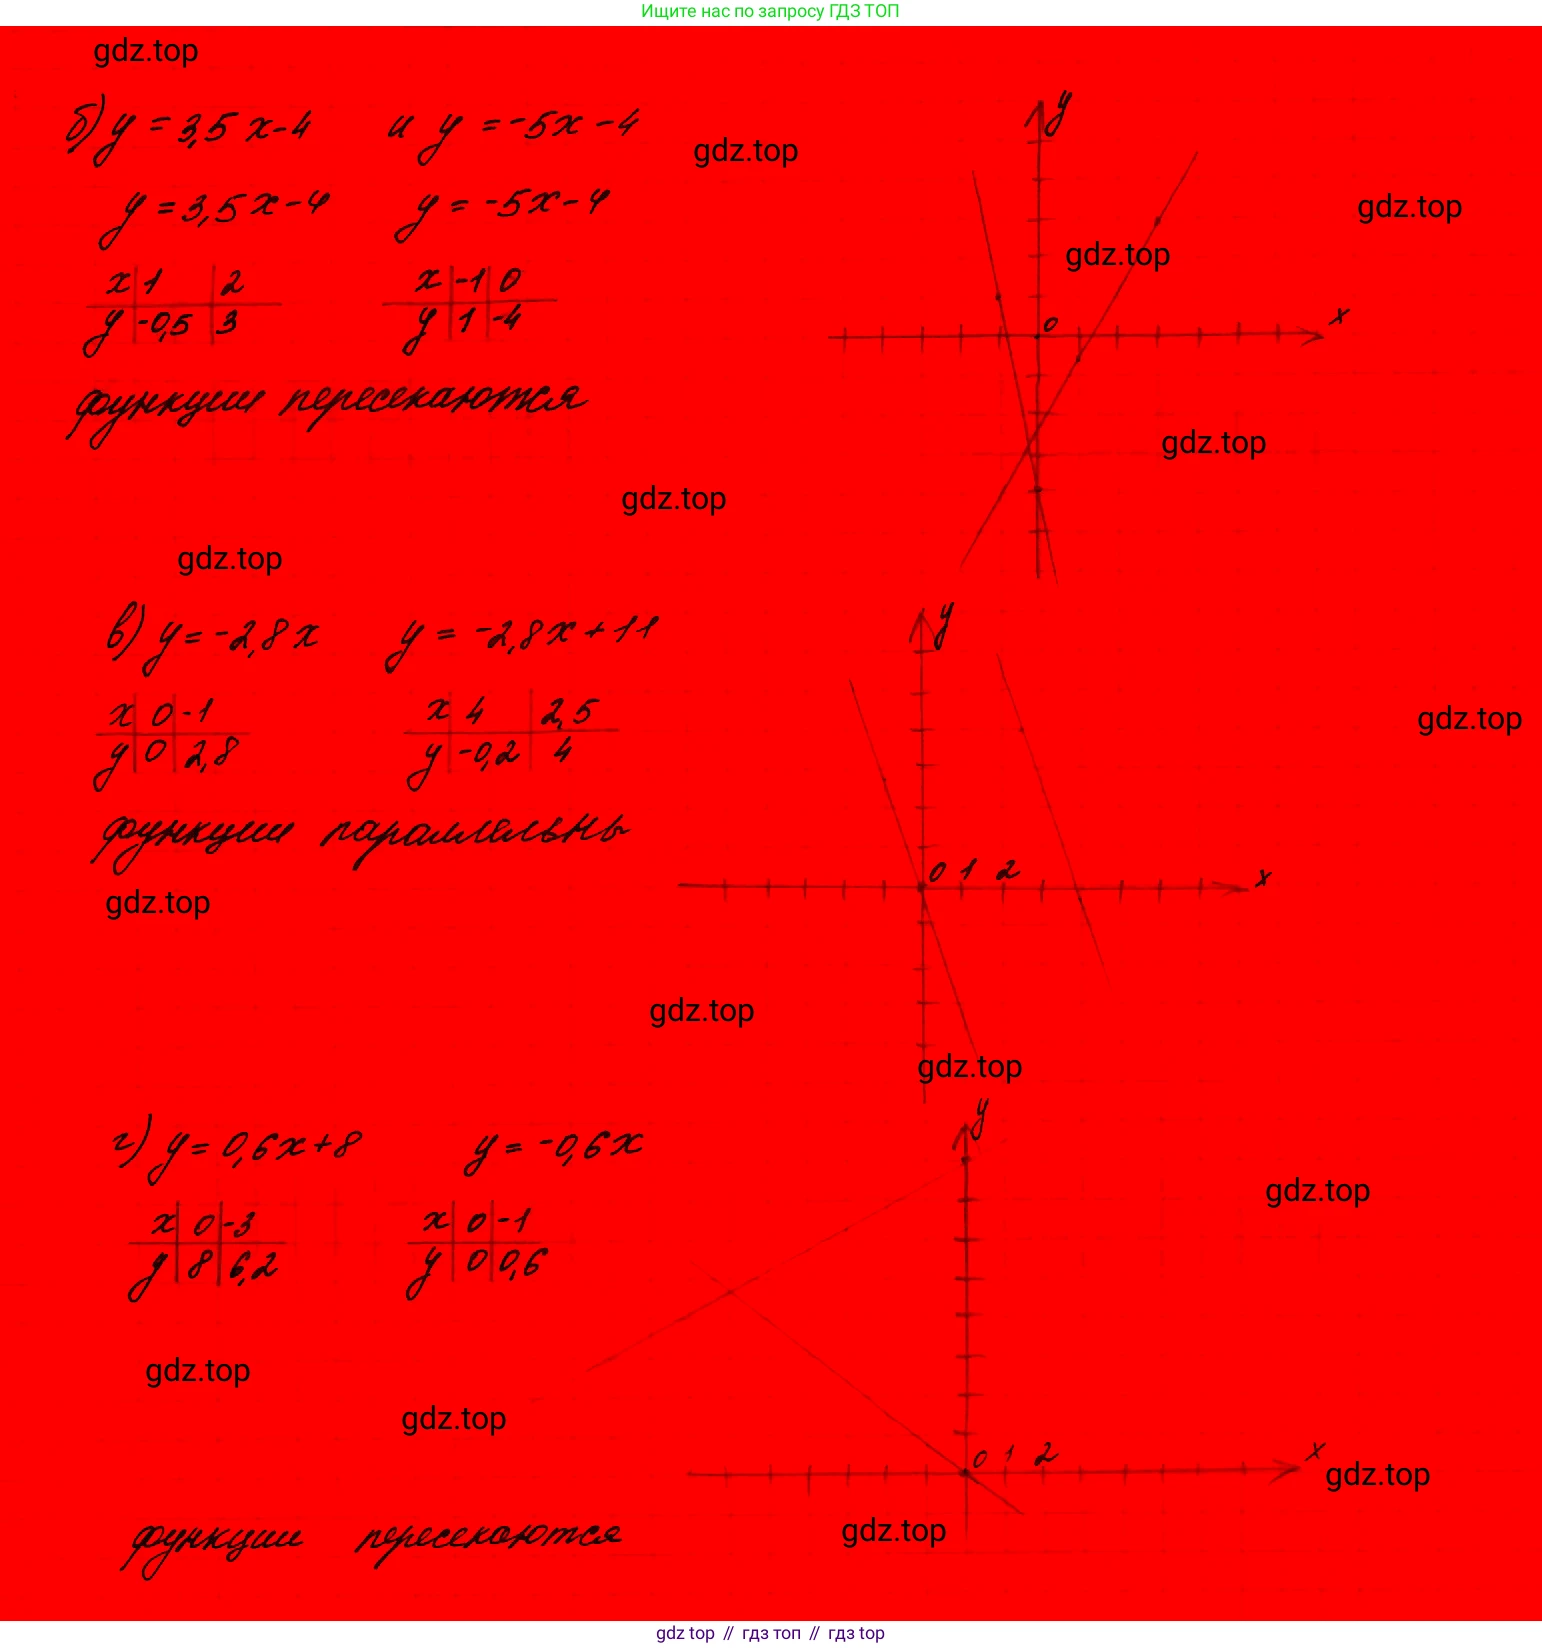 Ищите нас по запросу ГДЗ ТОП
gdz.top
б) y = 3,5x-4 и y = -5x-4
gdz.top
y = 3,5x-4 y = -5x-4
gdz.top
gdz.top
x 1 2
y -0,5 3
x -1 0
y 1 -4
функции пересекаются
y
0
x
gdz.top
gdz.top
gdz.top
в) y = -2,8x y = -2,8x+11
x 0 -1
y 0 2,8
x 4 2,5
y -0,2 4
gdz.top
функции параллельны
y
0 1 2
x
gdz.top
gdz.top
gdz.top
г) y = 0,6x+8 y = -0,6x
gdz.top
x 0 -3
y 8 6,2
x 0 -1
y 0 0,6
y
0 1 2
x
gdz.top
gdz.top
gdz.top
функции пересекаются
gdz.top
gdz top // гдз топ // гдз top